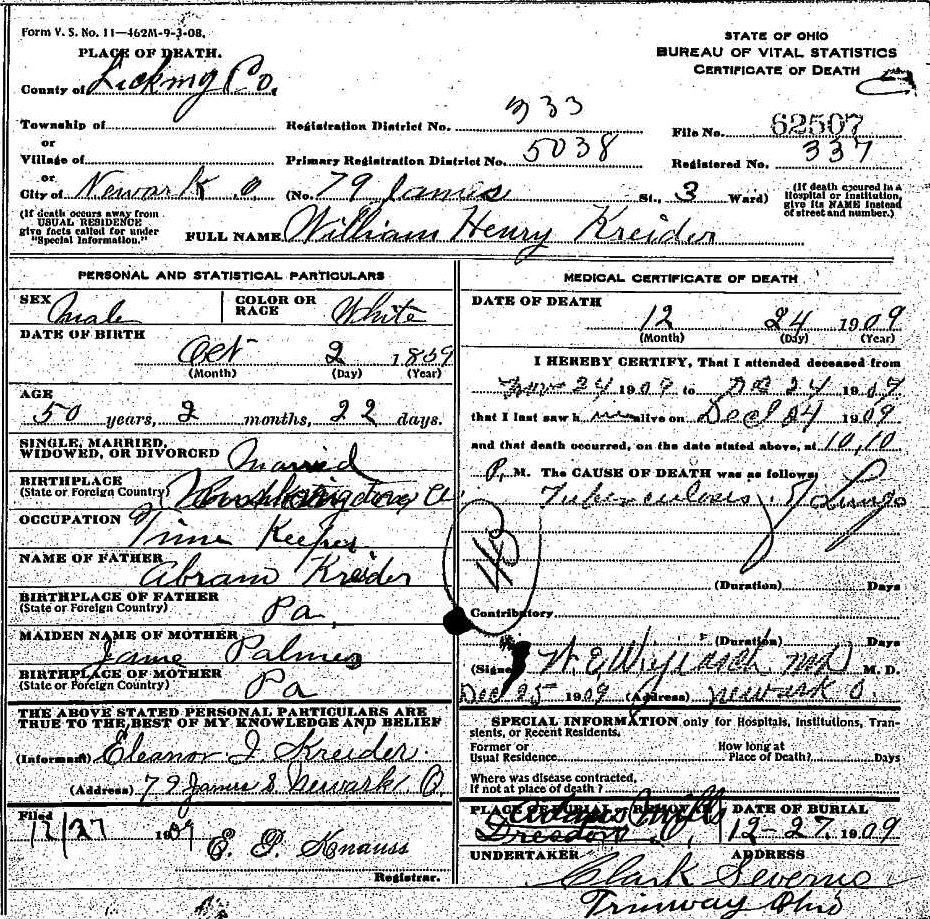 Form V. S. No. 11—462M-9-3-08.
STATE OF OHIO
BUREAU OF VITAL STATISTICS
CERTIFICATE OF DEATH
PLACE OF DEATH.
County of Licking Co.
Township of
or
Village of
or
City of Newark O.
Registration District No. 333
Primary Registration District No. 5038
File No. 62507
Registered No. 337
(No. 79 James St., 3 Ward)
(If death occured in a Hospital or Institution, give its NAME instead of street and number.)
(If death occurs away from USUAL RESIDENCE give facts called for under "Special Information.")
FULL NAME William Henry Kreider
PERSONAL AND STATISTICAL PARTICULARS
SEX Male
COLOR OR RACE White
DATE OF BIRTH
Oct 2 1859
(Month) (Day) (Year)
AGE
50 years, 2 months, 22 days.
SINGLE, MARRIED, WIDOWED, OR DIVORCED Married
BIRTHPLACE
(State or Foreign Country)
OCCUPATION
Time Keeper
NAME OF FATHER
Abram Kreider
BIRTHPLACE OF FATHER
(State or Foreign Country) Pa.
MAIDEN NAME OF MOTHER
Jane Palmer
BIRTHPLACE OF MOTHER
(State or Foreign Country) Pa
THE ABOVE STATED PERSONAL PARTICULARS ARE
TRUE TO THE BEST OF MY KNOWLEDGE AND BELIEF
(Informant) Eleanor J. Kreider.
(Address) 79 James S. Newark O.
Filed
12/27 1909
E. P. Knauss
Registrar.
MEDICAL CERTIFICATE OF DEATH
DATE OF DEATH
12 24 1909
(Month) (Day) (Year)
I HEREBY CERTIFY, That I attended deceased from
Nov 24 1909 to Dec 24 1909
that I last saw h im alive on Dec 24 1909
and that death occurred, on the date stated above, at 10,10
P. M. The CAUSE OF DEATH was as follows:
Tuberculosis of Lungs
(Duration) Days
Contributory
(Duration) Days
(Signed) M. D.
Dec 25 1909 (Address) Newark O.
SPECIAL INFORMATION only for Hospitals, Institutions, Tran-
sients, or Recent Residents.
Former or
Usual Residence
How long at
Place of Death? Days
Where was disease contracted,
If not at place of death?
PLACE OF BURIAL or REMOVAL
Adams Mills
Dresden, O.
DATE OF BURIAL
12-27 1909
UNDERTAKER
ADDRESS
Clark Severns
Trinway Ohio